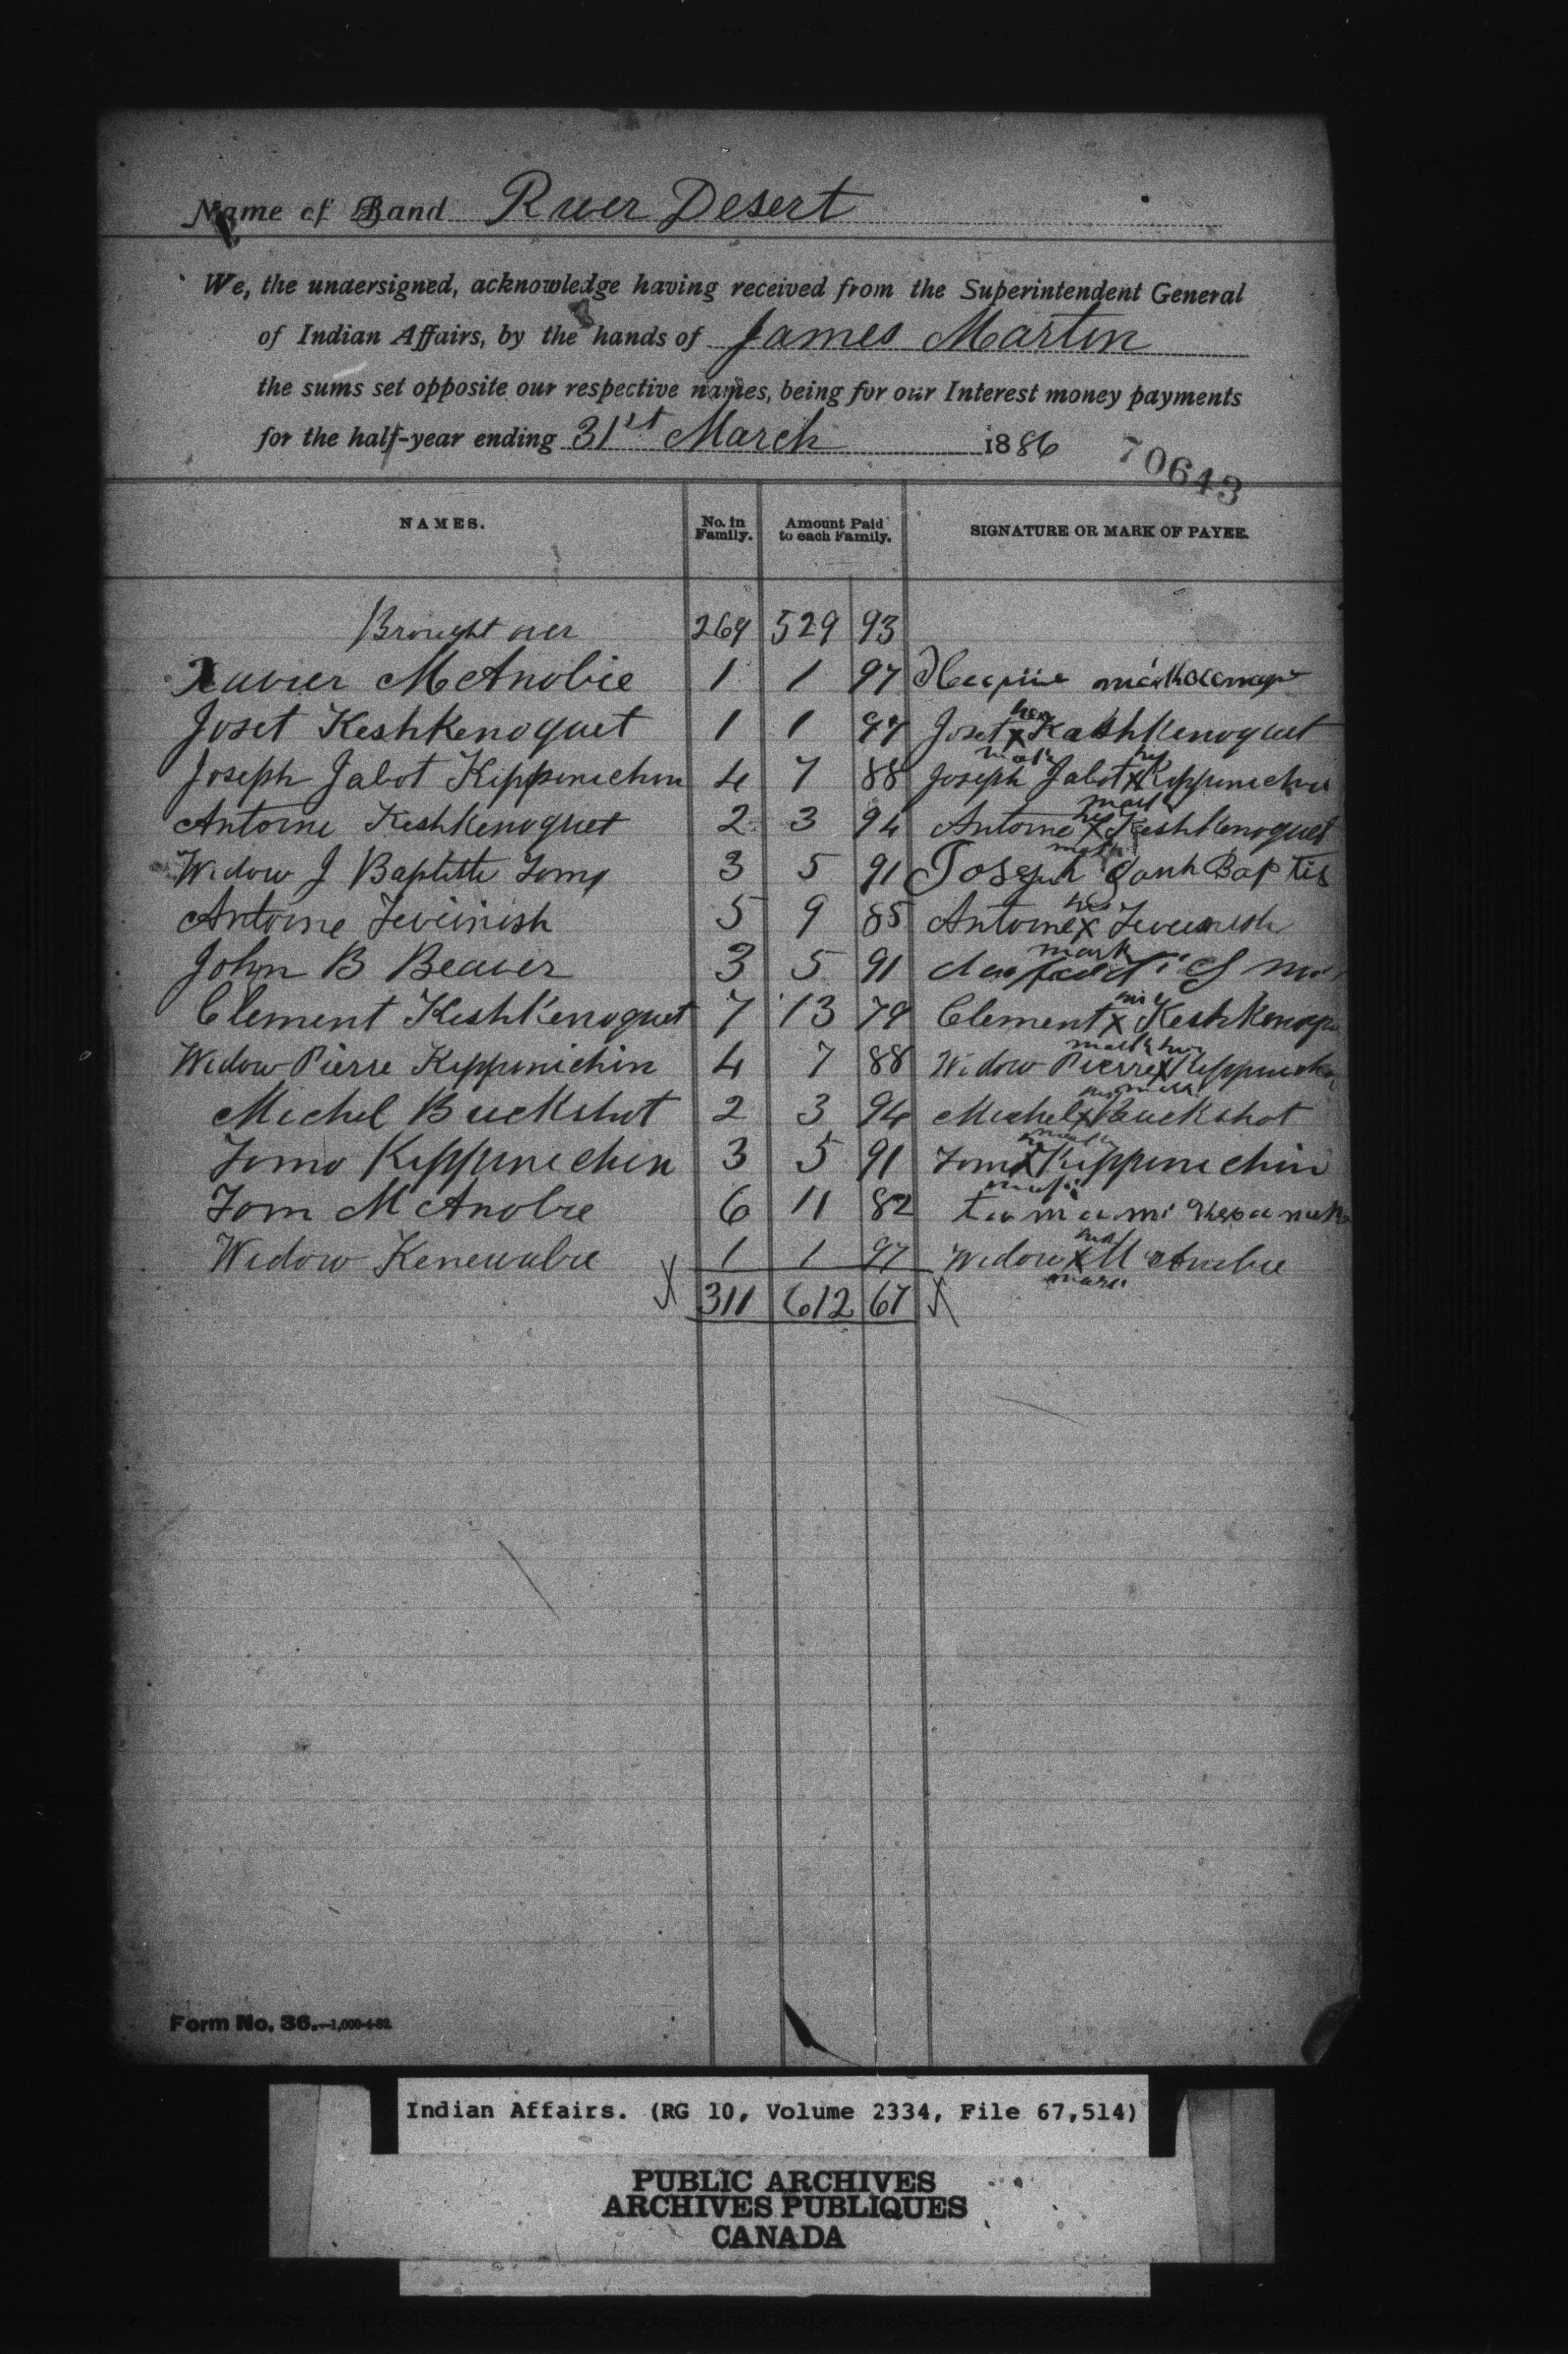 Name of Band River Desert
We, the undersigned, acknowledge having received from the Superintendent General
of Indian Affairs, by the hands of James Martin
the sums set opposite our respective names, being for our Interest money payments
for the half-year ending 31st March 1886
70643
NAMES. No. in Family. Amount Paid to each Family. SIGNATURE OR MARK OF PAYEE.
Brought over 269 529 93
Xavier McAnobie 1 1 97
Joset Keshkenoquet 1 1 97 Joset her x mark Kashkenoquet
Joseph Jabot Kipponichin 4 7 88 Joseph Jabot his x mark Kipponichin
Antoine Keshkenoquet 2 3 94 Antoine his x mark Keshkenoquet
Widow J Baptiste Tomo 3 5 91 Joseph Baptis
Antoine 5 9 85 Antoine his x mark
John B Beaver 3 5 91
Clement Keshkenoquet 7 13 79 Clement his x mark Keshkenoqu
Widow Pierre Kipponichin 4 7 88 Widow Pierre her x mark Kipponichin
Michel Buckshot 2 3 94 Michel his x mark Buckshot
Tomo Kipponichin 3 5 91 Tomo his x mark Kipponichin
Tom McAnobie 6 11 82
Widow Kenewabie 1 1 97 Widow her x mark McAnobie
X 311 612 67 X
Form No. 36.—1,000-4-82.
Indian Affairs. (RG 10, Volume 2334, File 67,514)
PUBLIC ARCHIVES
ARCHIVES PUBLIQUES
CANADA